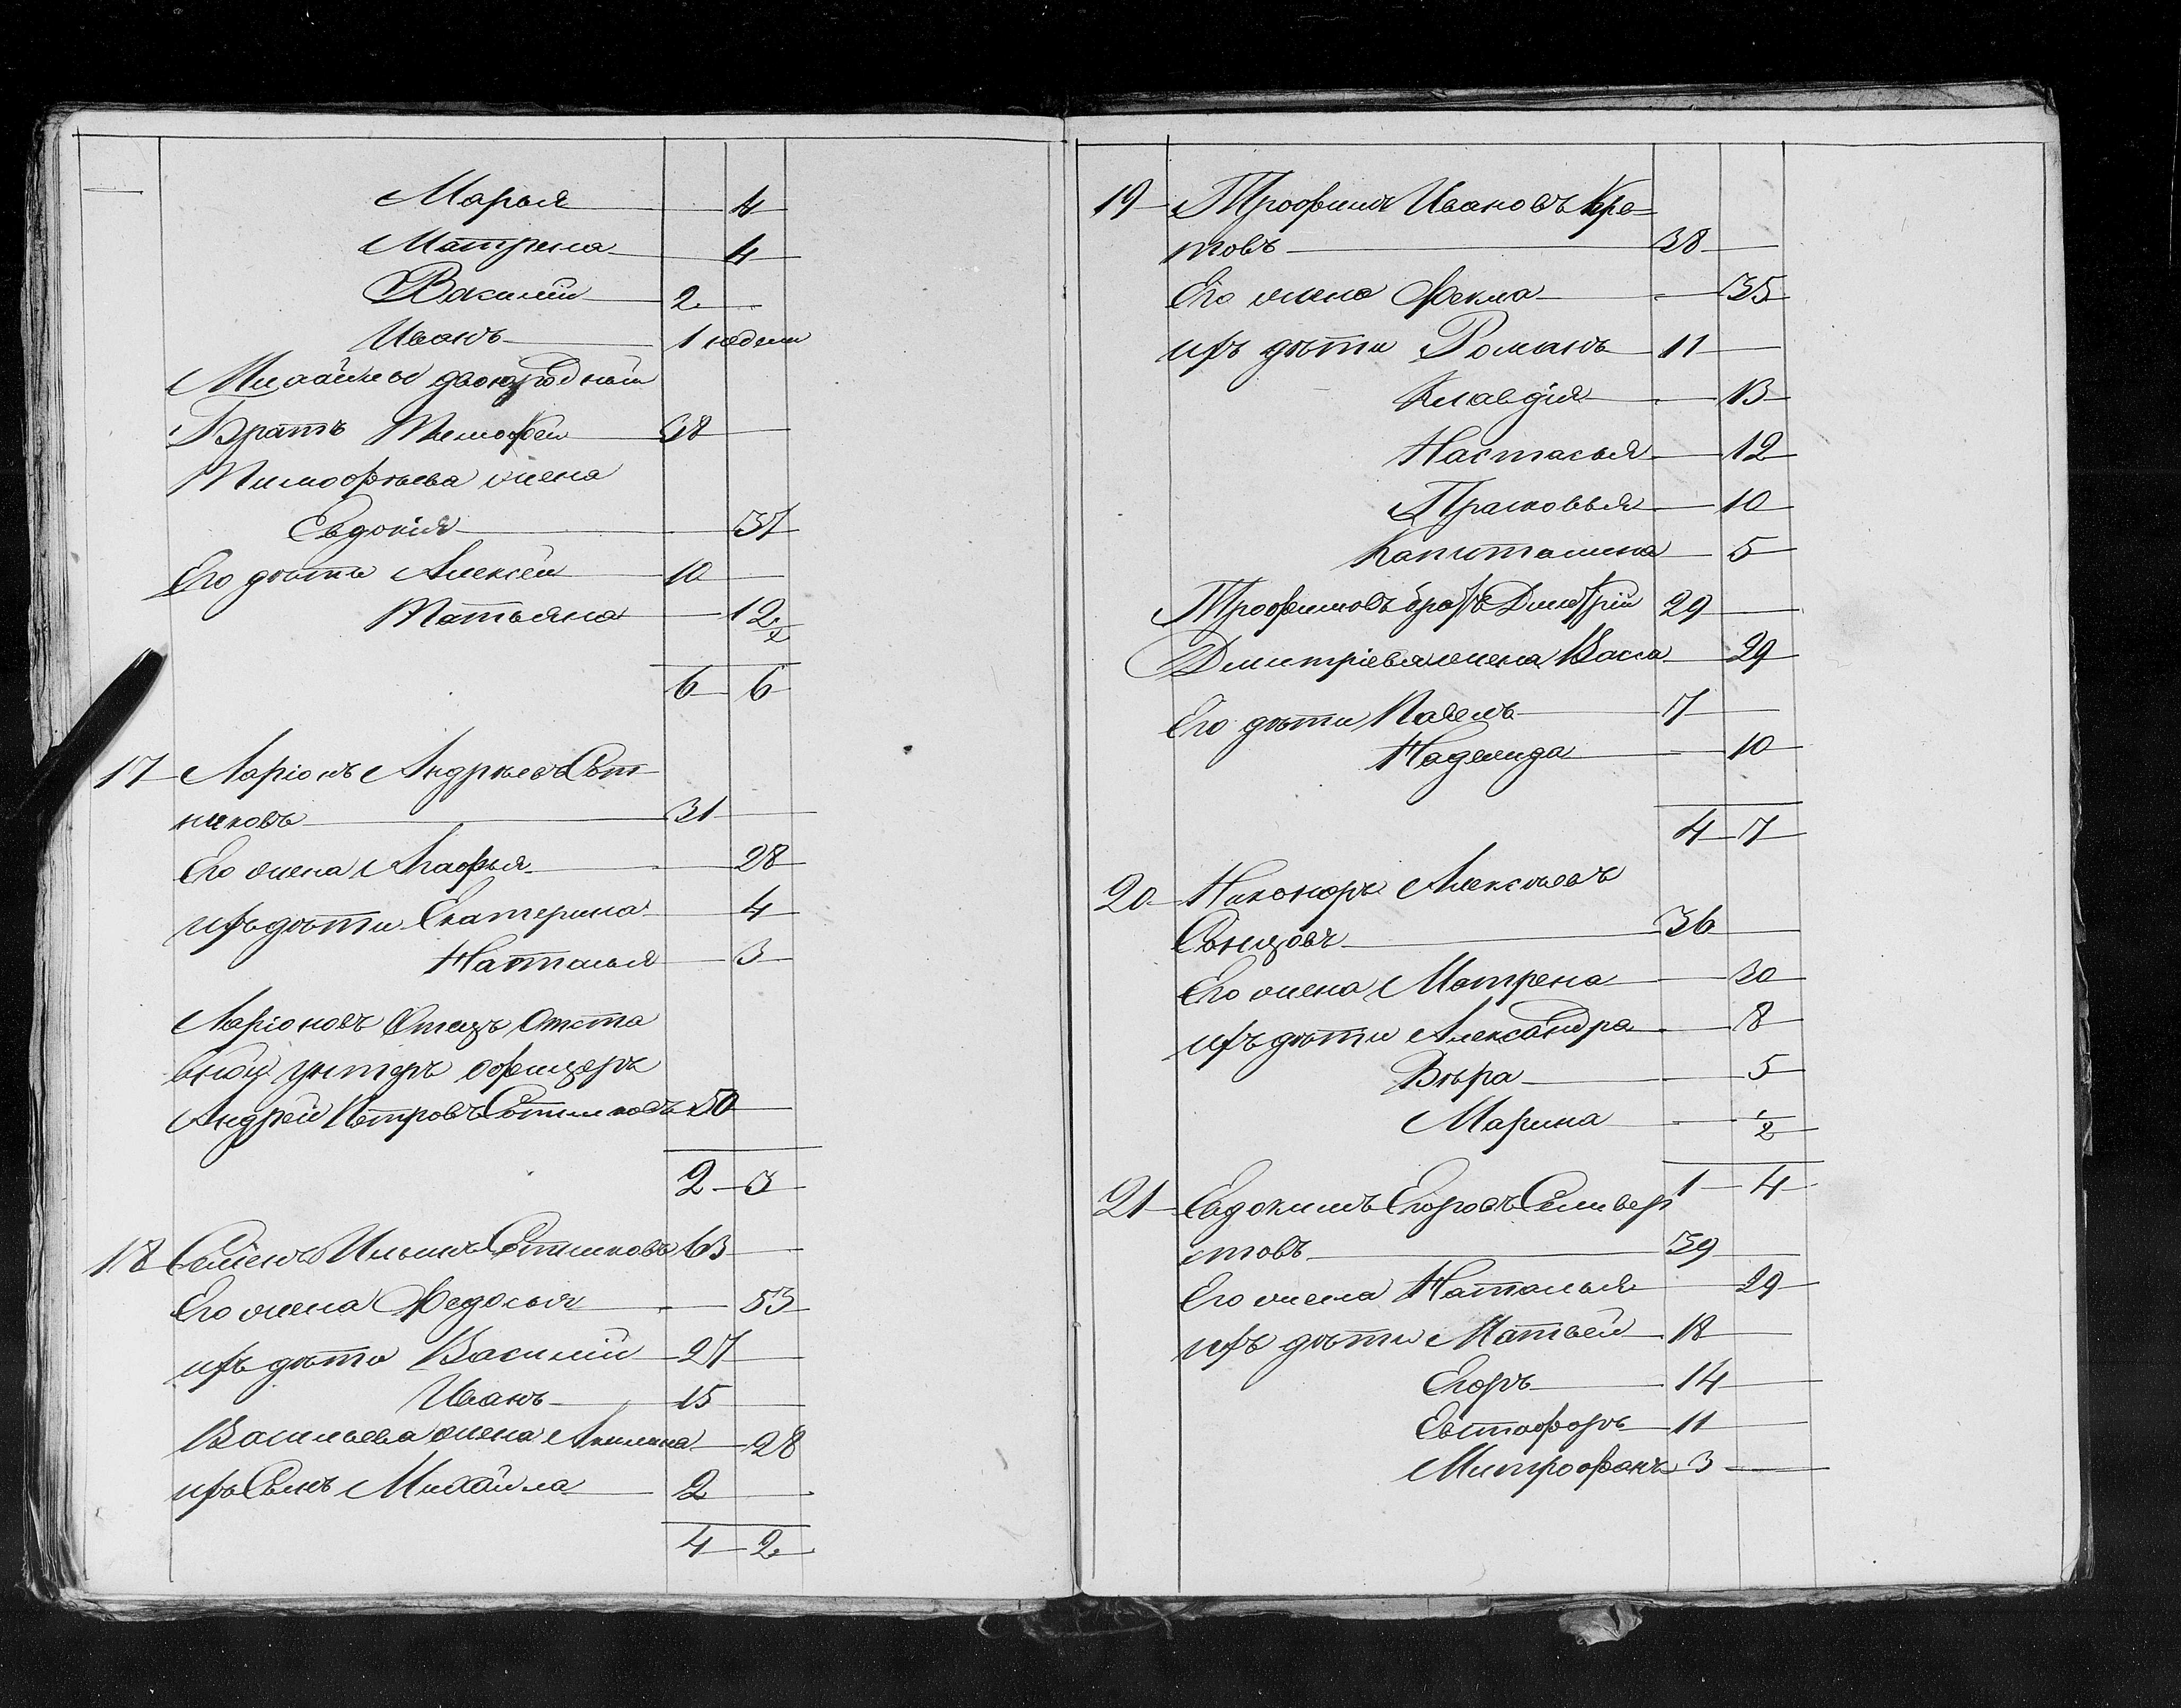 Марья 4
Матрена 4
Василій 2
Иванъ 1 недели
Михайлы двоюродный
Братъ Тимофей 38
Тимофѣева жена
Евдокія 37
Его дѣти Алексей 10
Татьяна 12
6 6
17 Ларіонъ Андрѣевъ Сот
никовъ 31
Его жена Агафья 28
ихъ дѣти Екатерина 4
Наталья 3
Ларіоновъ Отецъ Отста
вной унтеръ офицеръ
Андрей Петровъ Сотниковъ 50
2 3
18 Семенъ Ильинъ Сотниковъ 63
Его жена Федосья 53
ихъ дѣти Василій 27
Иванъ 15
Васильева жена Акилина 28
ихъ Сынъ Михайла 2
4 2
19 Трофимъ Ивановъ Кре=
товъ 38
Его жена Фекла 35
ихъ дѣти Романъ 11
Клавдія 13
Настасья 12
Прасковья 10
Капиталина 5
Трофимовъ братъ Дмитрій 29
Дмитріева жена Васса 29
Его дѣти Павелъ 7
Надежда 10
4 7
20 Никоноръ Алексѣевъ
36
Его жена Матрена 30
ихъ дѣти Александра 8
Вѣра 5
Марина 1/2
1 4
21 Евдокимъ Егоровъ Селивер
стовъ 39
Его жена Наталья 29
ихъ дѣти Матвей 18
Егоръ 14
Евстафоръ 11
Митрофанъ 3